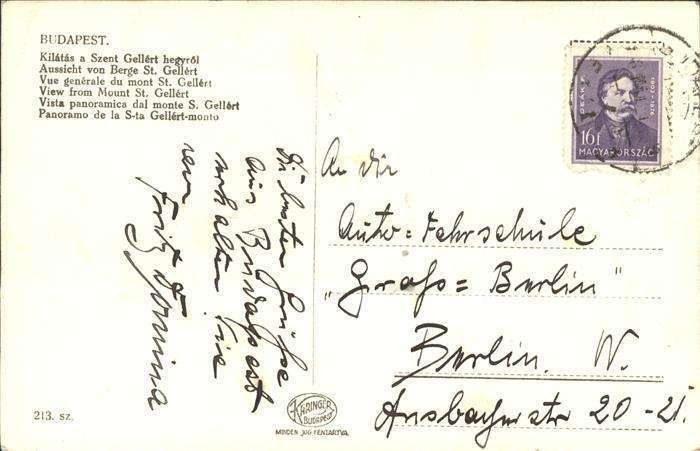 BUDAPEST.
Kilátás a Szent Gellért hegyröl
Aussicht von Berge St. Gellért
Vue genérale du mont St. Gellért
View from Mount St. Gellért
Vista panoramica dal monte S. Gellért
Panoramo de la S-ta Gellért-monto
Die besten Grüße
aus Budapest
erhalten Sie
von
Fritz
An die
Auto=Fahrschule
„Groß=Berlin"
Berlin. W.
Ansbacherstr 20-21.
DEAK F.
1803-1876
16f
MAGYARORSZÁG
213. sz.
KARINGER
BUDAPEST
MINDEN JOG FENTARTVA